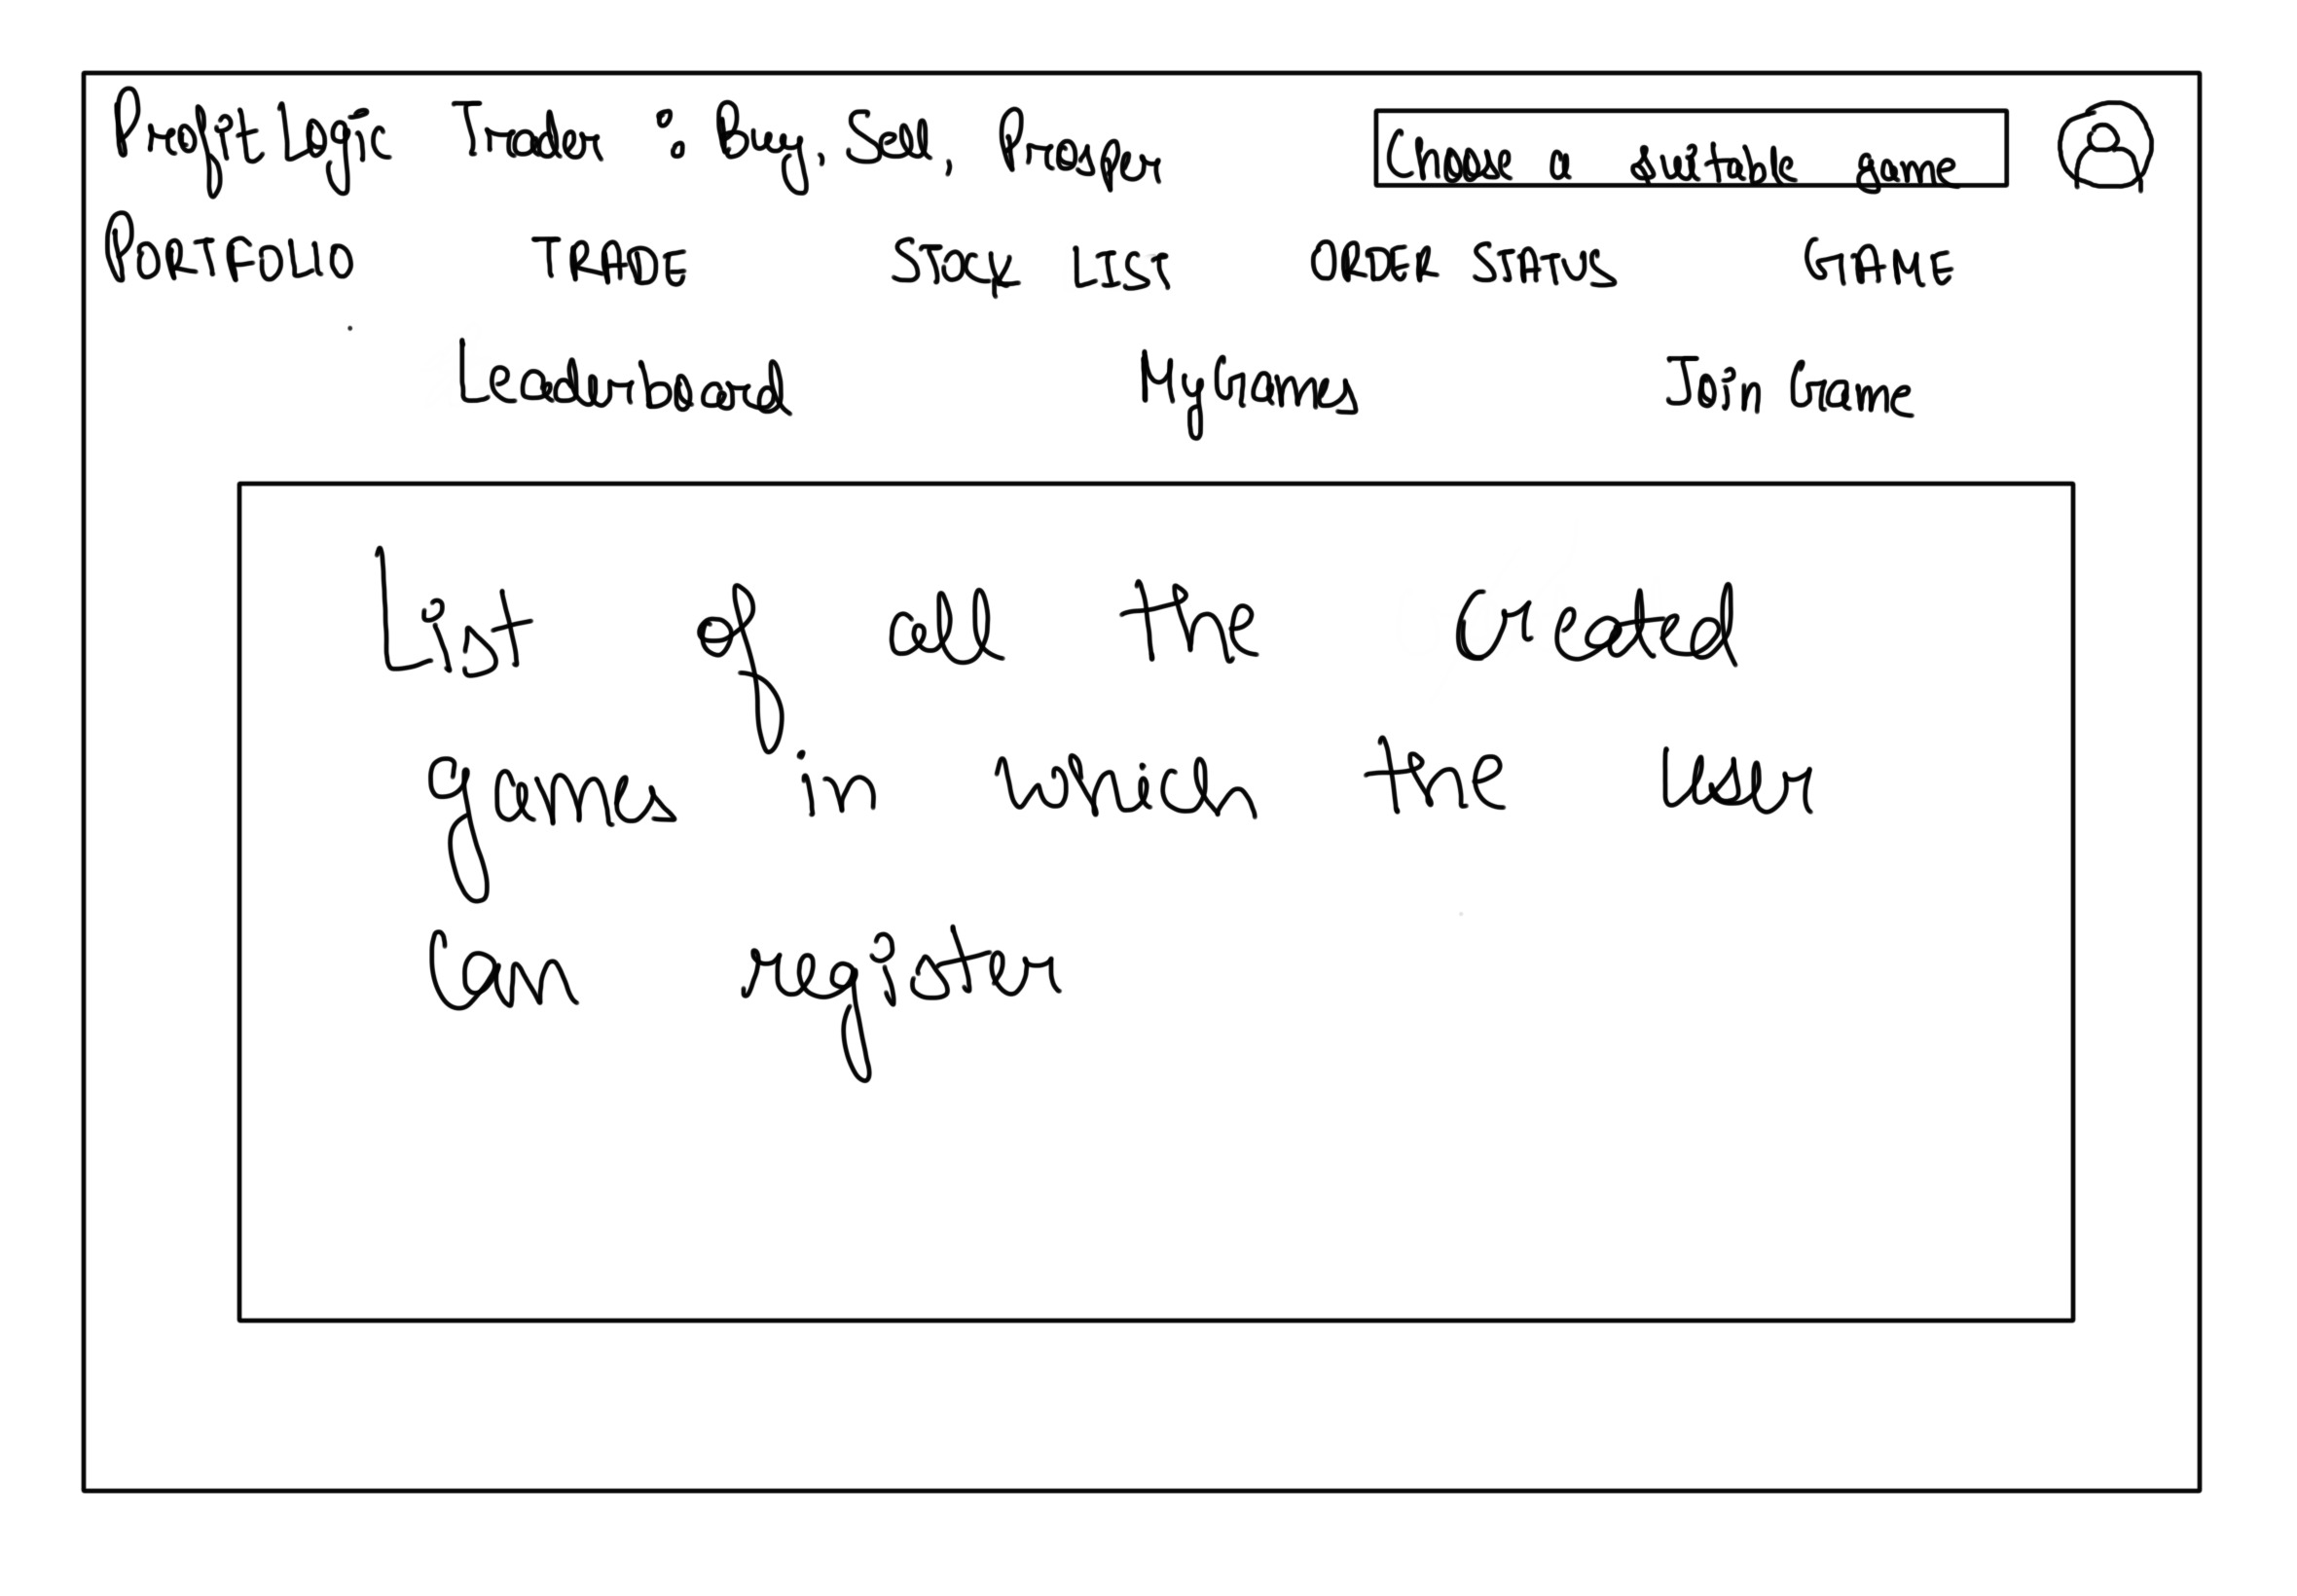 Profit Logic Trader : Buy, Sell, Prosper Choose a suitable game
PORTFOLIO TRADE STOCK LIST ORDER STATUS GAME
Leaderboard MyGames Join Game
List of all the created
games in which the user
can register